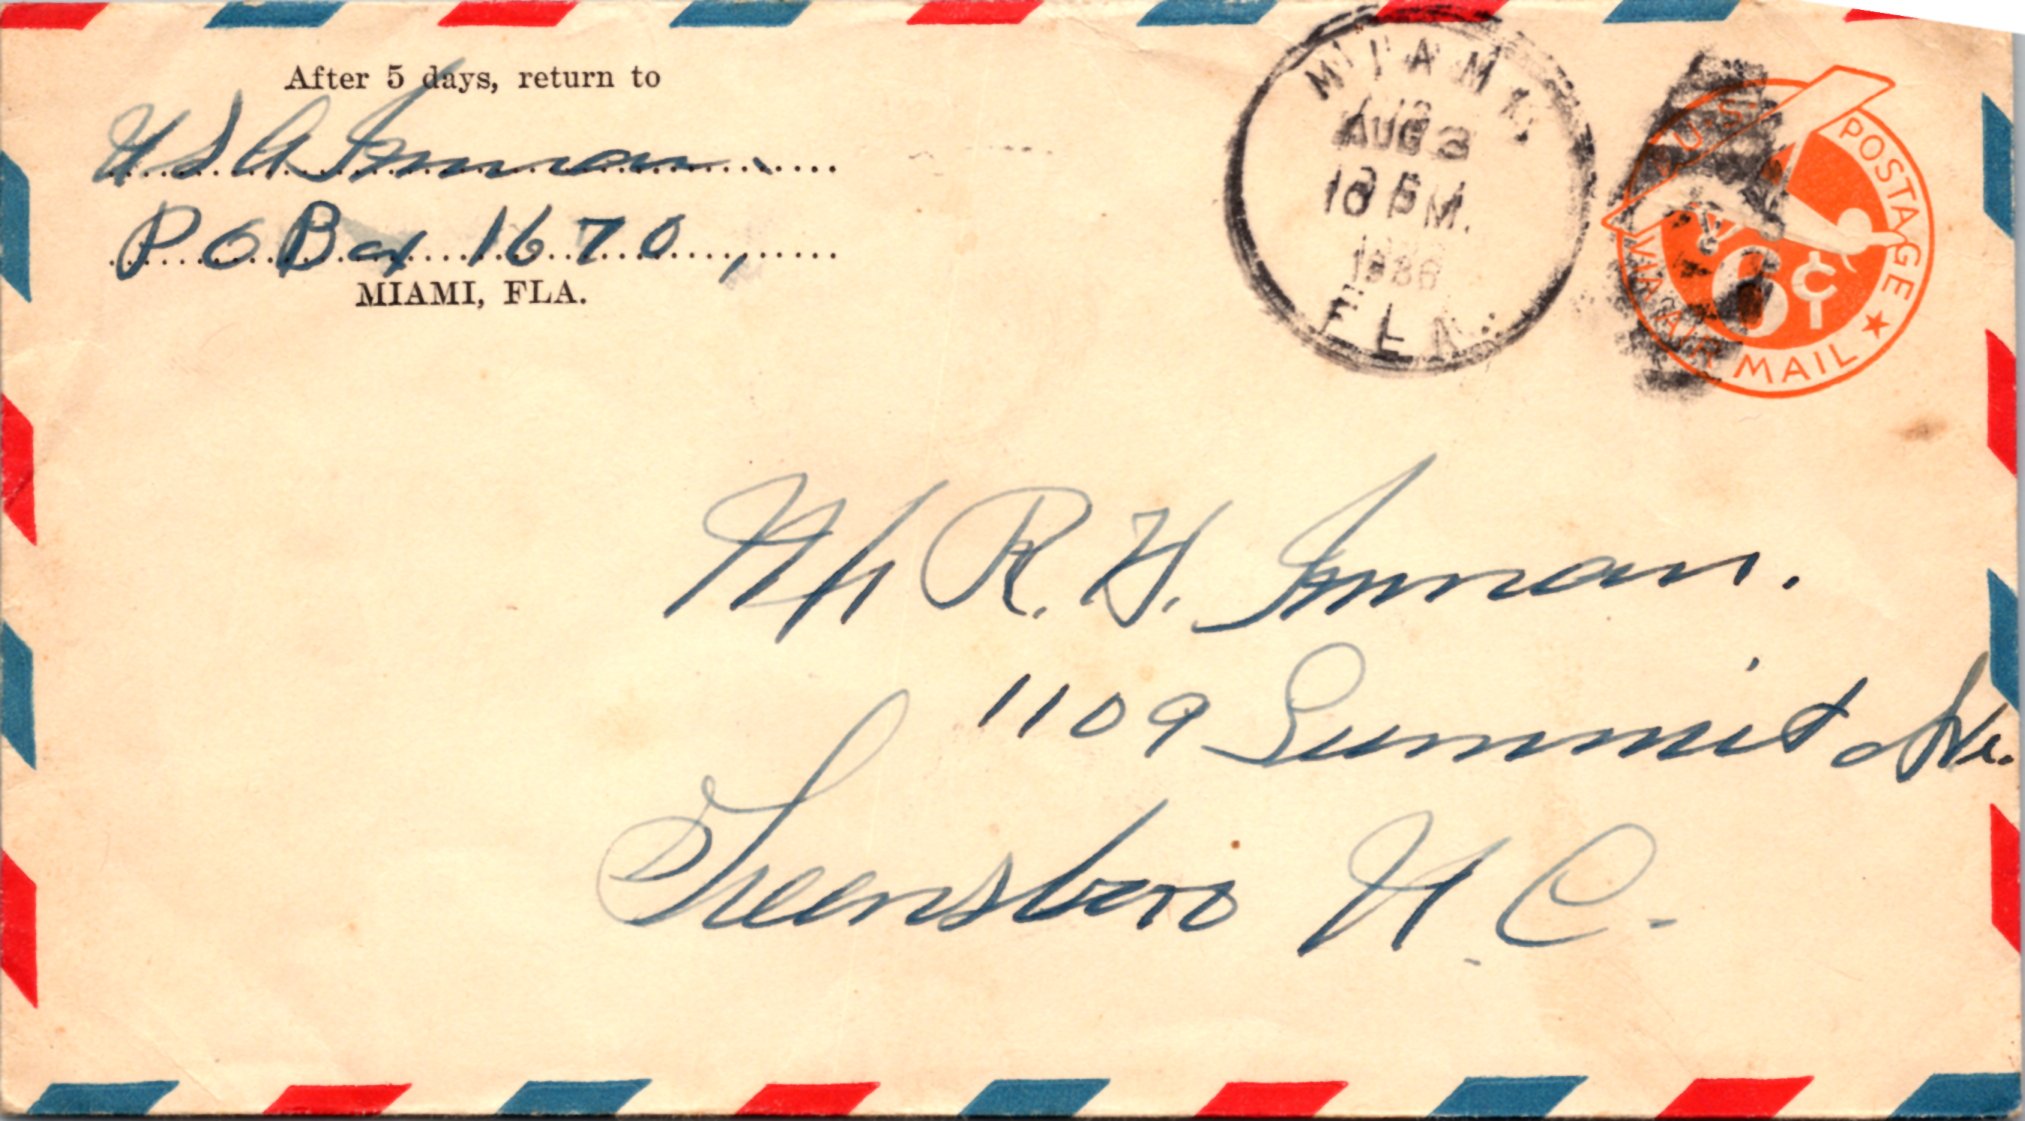 After 5 days, return to
Inman
P O Box 1670,
MIAMI, FLA.
MIAMI
AUG 3
PM.
FLA.
U.S. POSTAGE
6¢
VIA AIR MAIL
Mr R. H. Inman.
1109 Summit Ave.
Greensboro N. C.